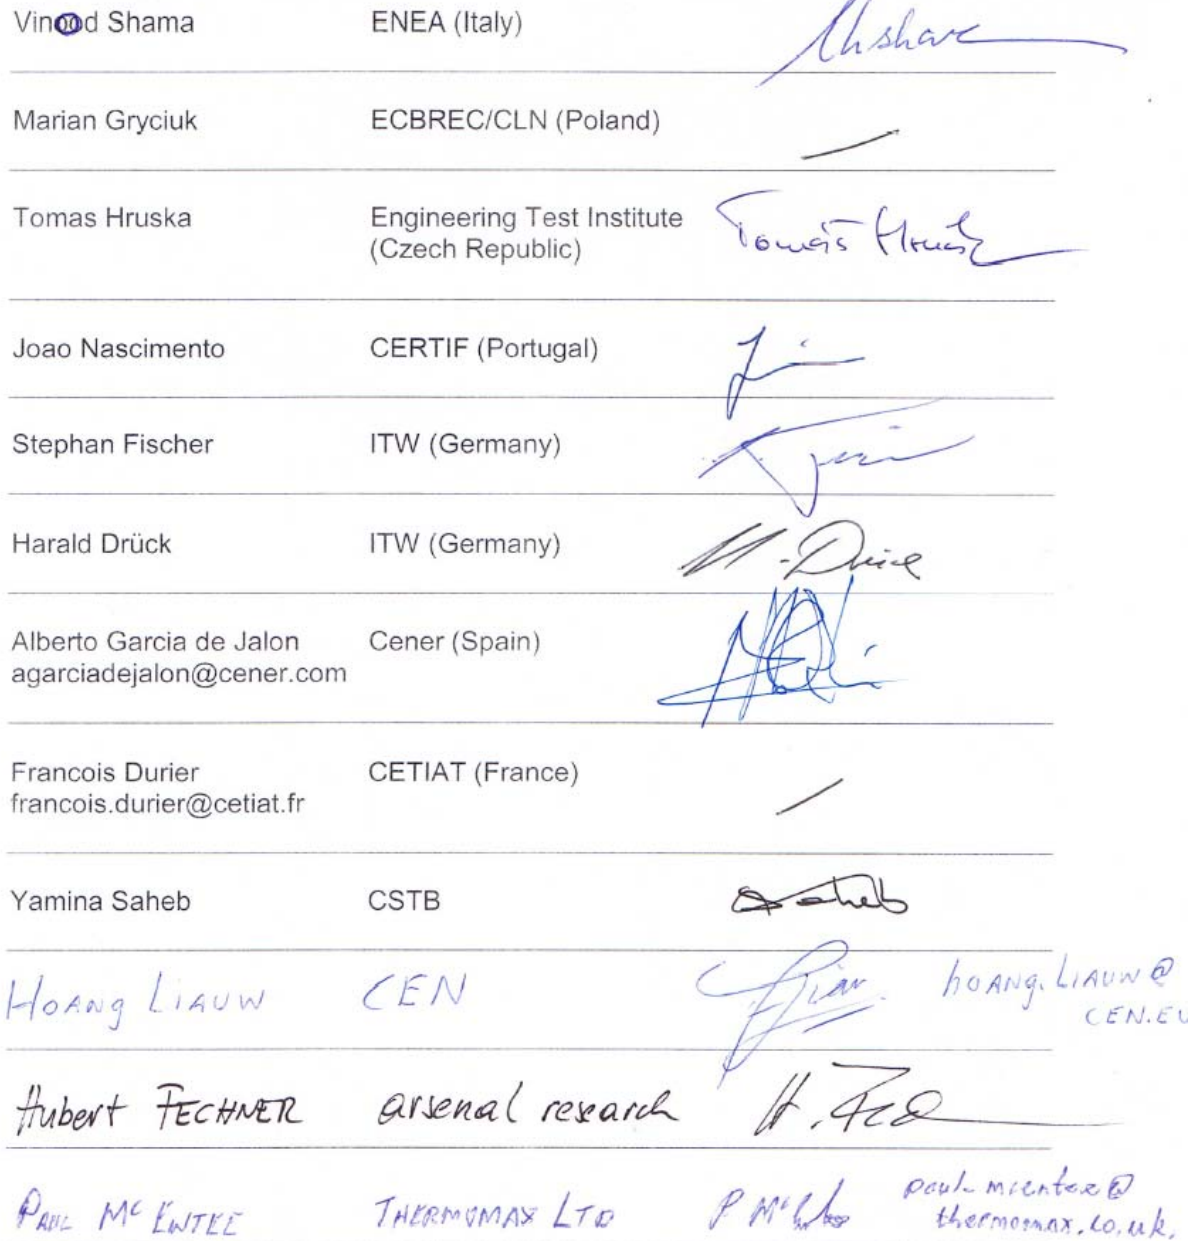 Vinood Shama ENEA (Italy)
Marian Gryciuk ECBREC/CLN (Poland)
Tomas Hruska Engineering Test Institute Tomáš Hruška
(Czech Republic)
Joao Nascimento CERTIF (Portugal)
Stephan Fischer ITW (Germany)
Harald Drück ITW (Germany) H. Drück
Alberto Garcia de Jalon Cener (Spain)
agarciadejalon@cener.com
Francois Durier CETIAT (France)
francois.durier@cetiat.fr
Yamina Saheb CSTB Saheb
HOANG LIAUW CEN hOANG.LIAUW@
CEN.EU
Hubert FECHNER arsenal research
PAUL Mc ENTEE THERMOMAX LTD paul.mcentee@
thermomax.co.uk.